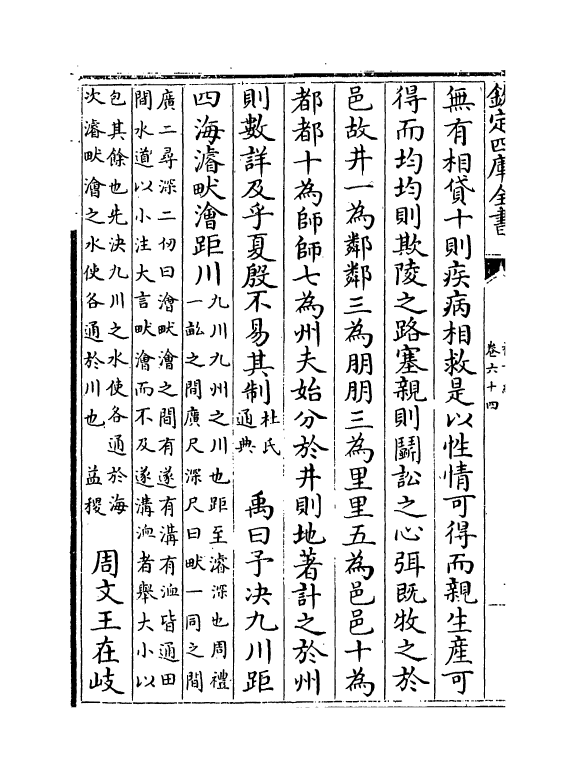 欽定四庫全書
卷六十四
無有相貸十則疾病相救是以性情可得而親生產可
得而均均則欺陵之路塞親則鬭訟之心弭既牧之於
邑故井一為鄰鄰三為朋朋三為里里五為邑邑十為
都都十為師師七為州夫始分於井則地著計之於州
則數詳及乎夏殷不易其制
杜氏
通典
禹曰予决九川距
四海濬畎澮距川
九川九州之川也距至濬深也周禮
一畝之間廣尺深尺曰畎一同之間
廣二尋深二仞曰澮畎澮之間有遂有溝有洫皆通田
間水道以小注大言畎澮而不及遂溝洫者舉大小以
包其餘也先决九川之水使各通於海
次濬畎澮之水使各通於川也 益稷
周文王在岐